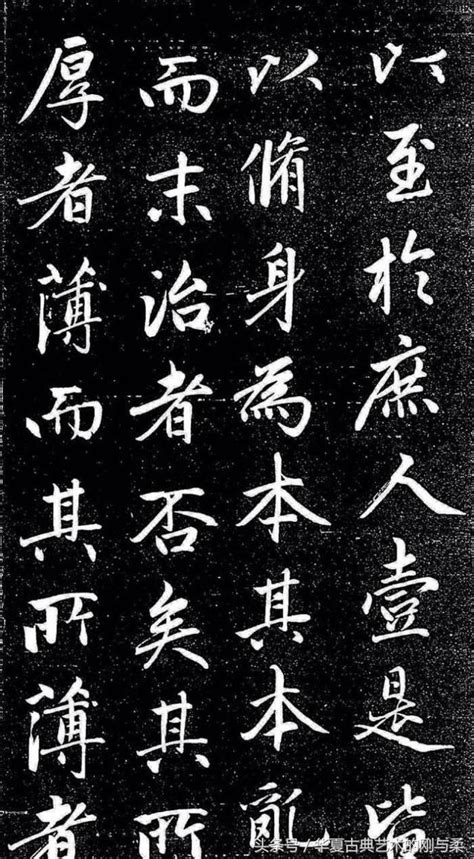 以至於庶人壹是皆
以脩身為本其本亂
而末治者否矣其所
厚者薄而其所薄者
头条号／华夏古典艺术的刚与柔